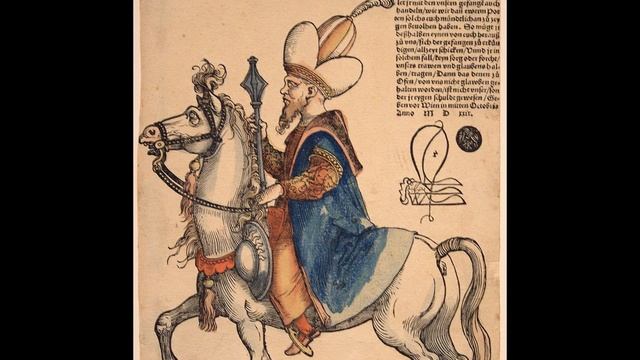 let jr mit den unsern gefangē auch
handeln / wie wir dañ ewerm Po=
ten solchs euch mündtlichen zů zey=
gen beuolhen haben. So mügt jr
deßhalben eynen von euch herauß
zů vns / sich der gefangen zů erkün=
digen / all zeyt schicken / Vnnd jr in
solchem fall / keyn sorg oder forcht /
vnsers trawen vnd glaubens hal=
ben / tragen / Dann das denen zů
Ofen / von vns nicht glawben ge=
halten worden / ist nicht vnser / son
der jr eygen schulde gewesen / Ge=
ben vor Wien in mitten Octobris
Anno M D xxix.